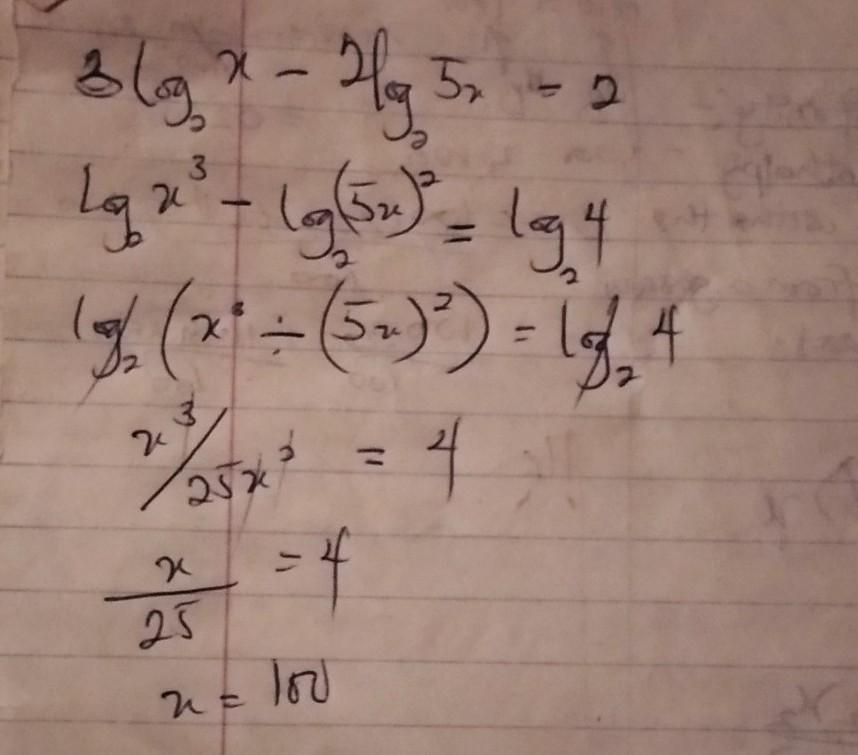 3 log₂ x - 2 log₂ 5x = 2
log₂ x³ - log₂ (5x)² = log₂ 4
log₂ (x³ ÷ (5x)²) = log₂ 4
x³/25x² = 4
x/25 = 4
x = 100